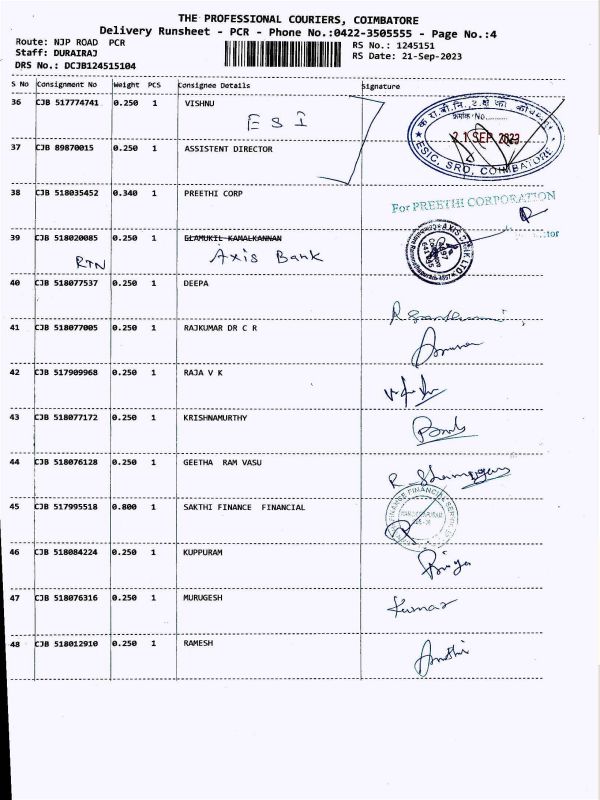 THE PROFESSIONAL COURIERS, COIMBATORE
Delivery Runsheet - PCR - Phone No.:0422-3505555 - Page No.:4
Route: NJP ROAD PCR
RS No.: 1245151
Staff: DURAIRAJ
RS Date: 21-Sep-2023
DRS No.: DCJB124515104
S No Consignment No Weight PCS Consignee Details Signature
36 CJB 517774741 0.250 1 VISHNU
ESI
37 CJB 89870015 0.250 1 ASSISTENT DIRECTOR
क.रा.बी.नि.
No.
21 SEP 2023
ESIC, SRO, COIMBATORE
38 CJB 518035452 0.340 1 PREETHI CORP
For PREETHI CORPORATION
39 CJB 518020085 0.250 1 ELAMUKIL KAMALKANNAN
RTN Axis Bank
40 CJB 518077537 0.250 1 DEEPA
41 CJB 518077005 0.250 1 RAJKUMAR DR C R
42 CJB 517909968 0.250 1 RAJA V K
43 CJB 518077172 0.250 1 KRISHNAMURTHY
44 CJB 518076128 0.250 1 GEETHA RAM VASU
45 CJB 517995518 0.800 1 SAKTHI FINANCE FINANCIAL
46 CJB 518084224 0.250 1 KUPPURAM
Priya
47 CJB 518076316 0.250 1 MURUGESH
Kumar
48 CJB 518012910 0.250 1 RAMESH